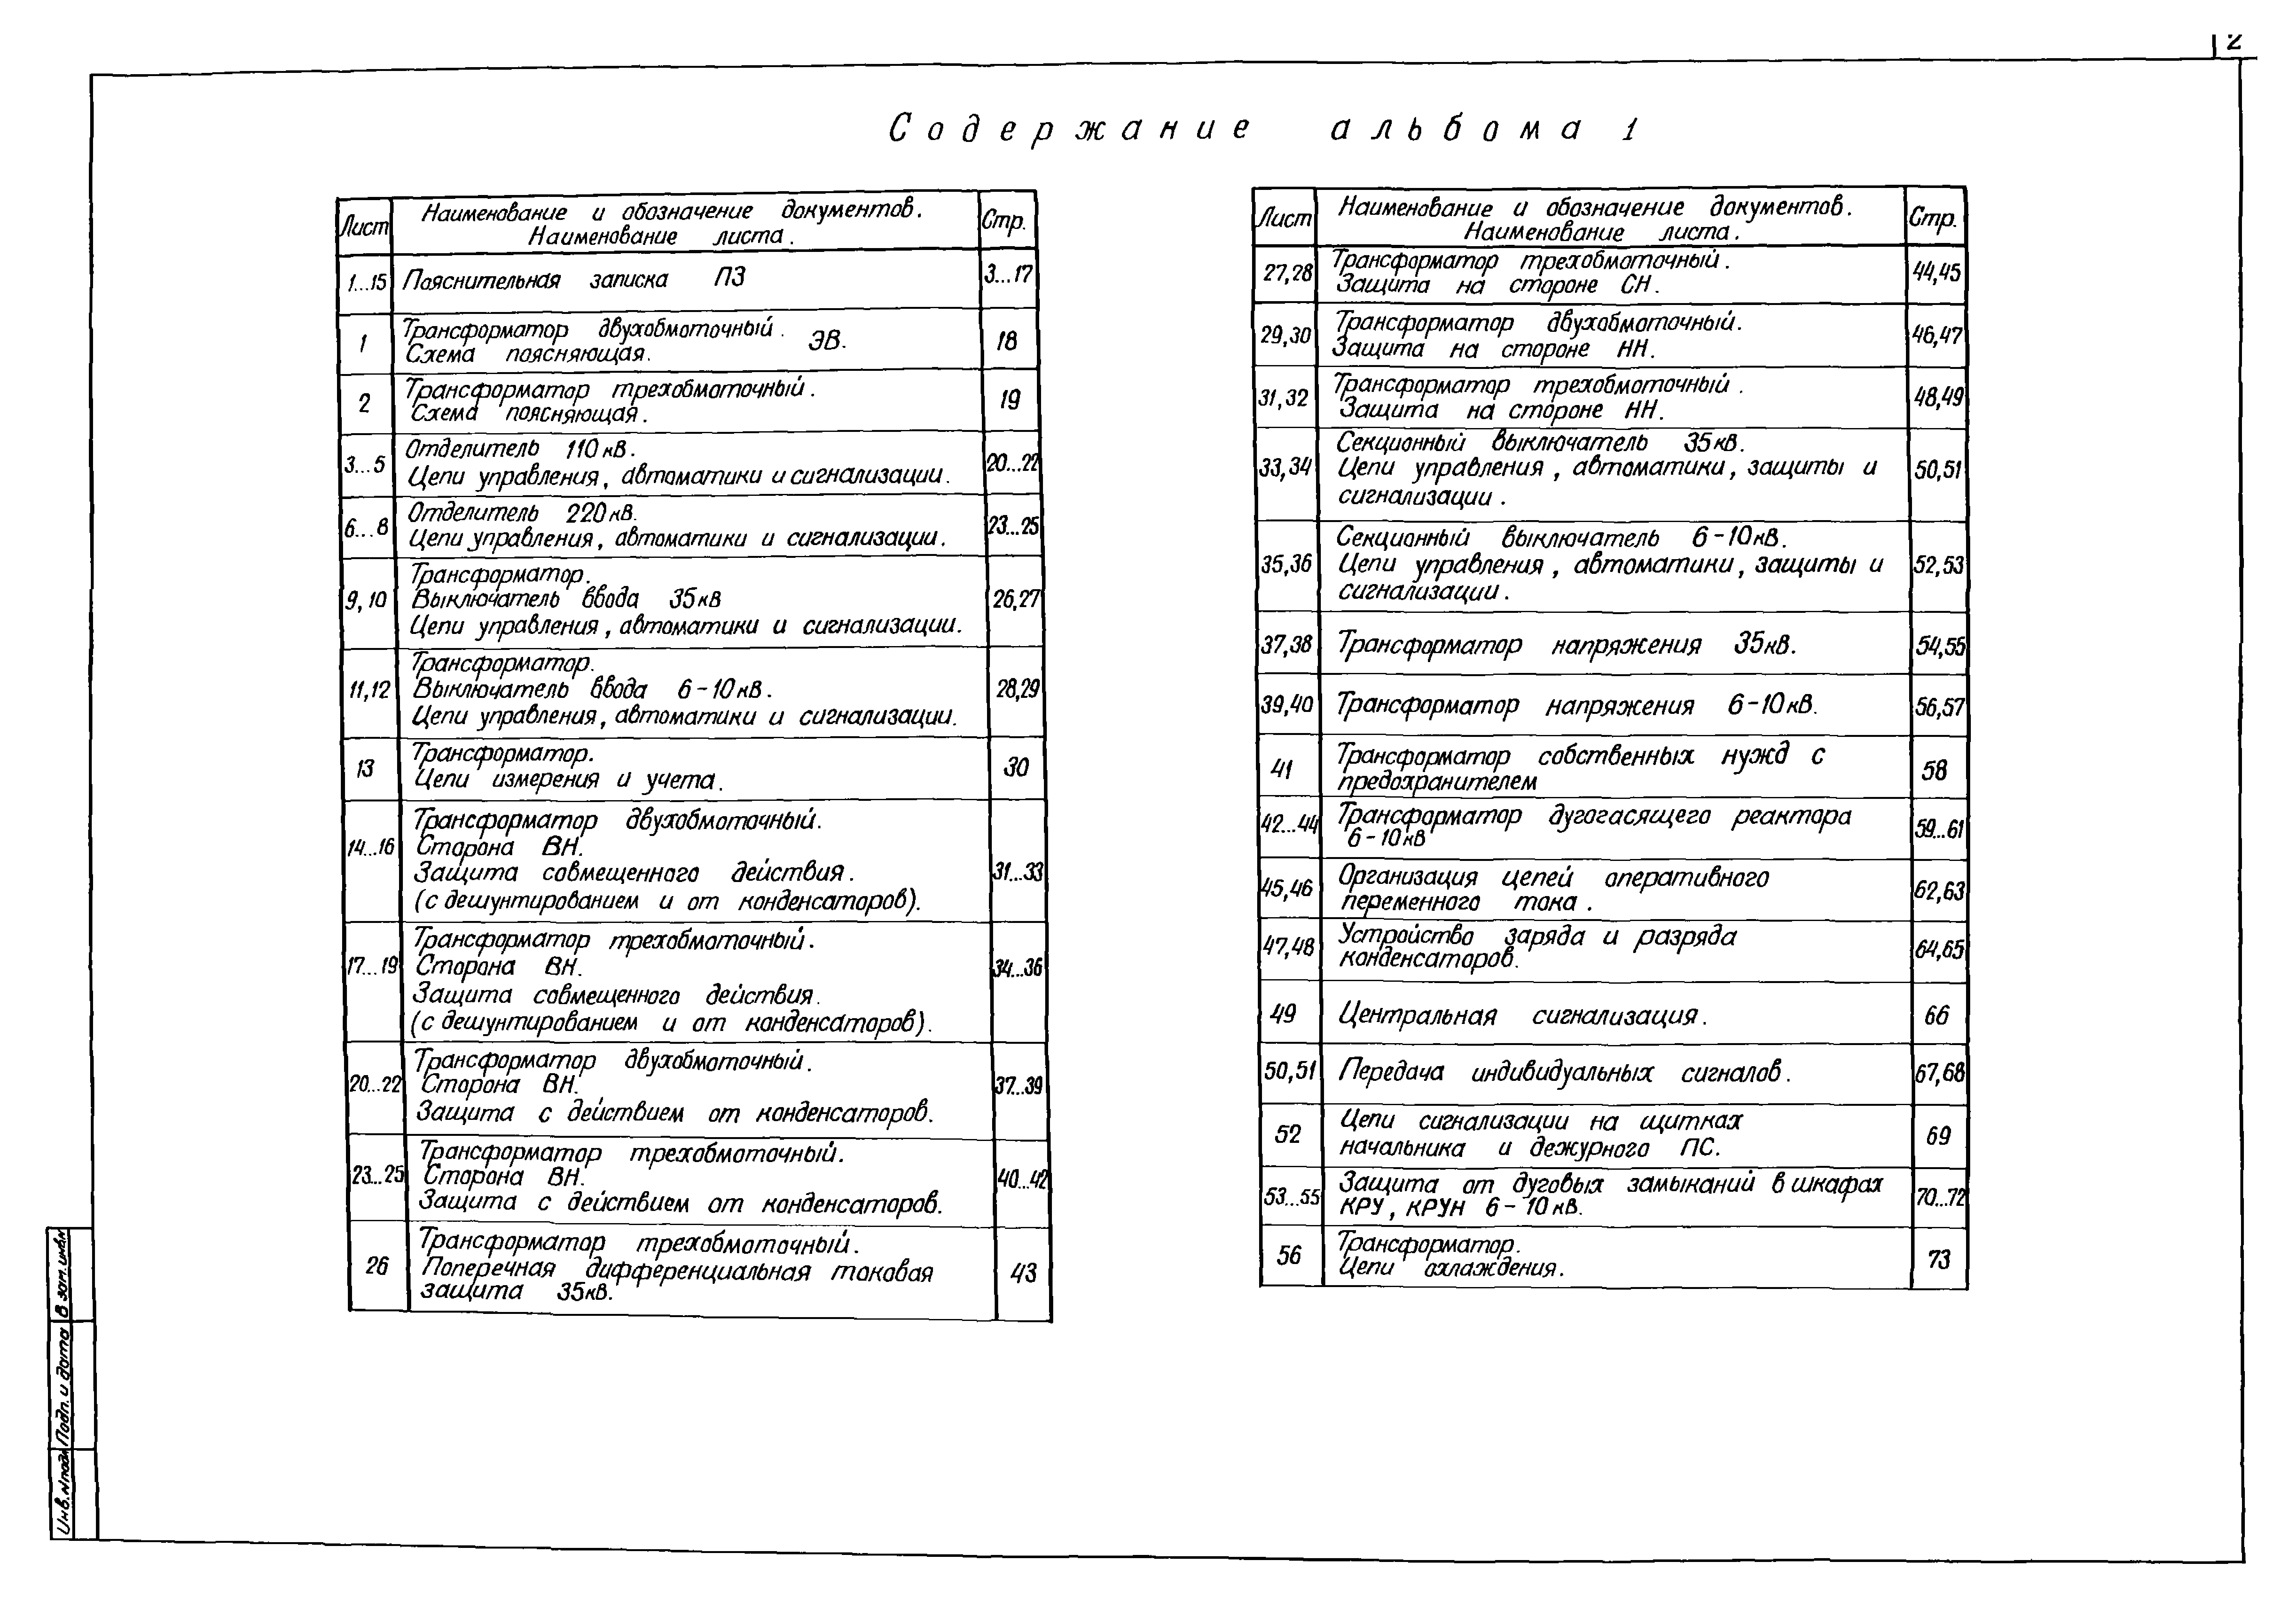 2
Содержание альбома 1
Лист
Наименование и обозначение документов.
Наименование листа.
Стр.
1...15
Пояснительная записка ПЗ
3...17
1
Трансформатор двухобмоточный.
Схема поясняющая. ЭВ.
18
2
Трансформатор трехобмоточный.
Схема поясняющая.
19
3...5
Отделитель 110кВ.
Цепи управления, автоматики и сигнализации.
20...22
6...8
Отделитель 220кВ.
Цепи управления, автоматики и сигнализации.
23...25
9,10
Трансформатор.
Выключатель ввода 35кВ
Цепи управления, автоматики и сигнализации.
26,27
11,12
Трансформатор.
Выключатель ввода 6-10кВ.
Цепи управления, автоматики и сигнализации.
28,29
13
Трансформатор.
Цепи измерения и учета.
30
14...16
Трансформатор двухобмоточный.
Сторона ВН.
Защита совмещенного действия.
(с дешунтированием и от конденсаторов).
31...33
17...19
Трансформатор трехобмоточный.
Сторона ВН.
Защита совмещенного действия.
(с дешунтированием и от конденсаторов).
34...36
20...22
Трансформатор двухобмоточный.
Сторона ВН.
Защита с действием от конденсаторов.
37...39
23...25
Трансформатор трехобмоточный.
Сторона ВН.
Защита с действием от конденсаторов.
40...42
26
Трансформатор трехобмоточный.
Поперечная дифференциальная токовая
защита 35кВ.
43
Лист
Наименование и обозначение документов.
Наименование листа.
Стр.
27,28
Трансформатор трехобмоточный.
Защита на стороне СН.
44,45
29,30
Трансформатор двухобмоточный.
Защита на стороне НН.
46,47
31,32
Трансформатор трехобмоточный.
Защита на стороне НН.
48,49
33,34
Секционный выключатель 35кВ.
Цепи управления, автоматики, защиты и
сигнализации.
50,51
35,36
Секционный выключатель 6-10кВ.
Цепи управления, автоматики, защиты и
сигнализации.
52,53
37,38
Трансформатор напряжения 35кВ.
54,55
39,40
Трансформатор напряжения 6-10кВ.
56,57
41
Трансформатор собственных нужд с
предохранителем
58
42...44
Трансформатор дугогасящего реактора
6-10кВ
59...61
45,46
Организация цепей оперативного
переменного тока.
62,63
47,48
Устройство заряда и разряда
конденсаторов.
64,65
49
Центральная сигнализация.
66
50,51
Передача индивидуальных сигналов.
67,68
52
Цепи сигнализации на щитках
начальника и дежурного ПС.
69
53...55
Защита от дуговых замыканий в шкафах
КРУ, КРУН 6-10кВ.
70...72
56
Трансформатор.
Цепи охлаждения.
73
Инв.№подл
Подп. и дата
Взам.инв.№